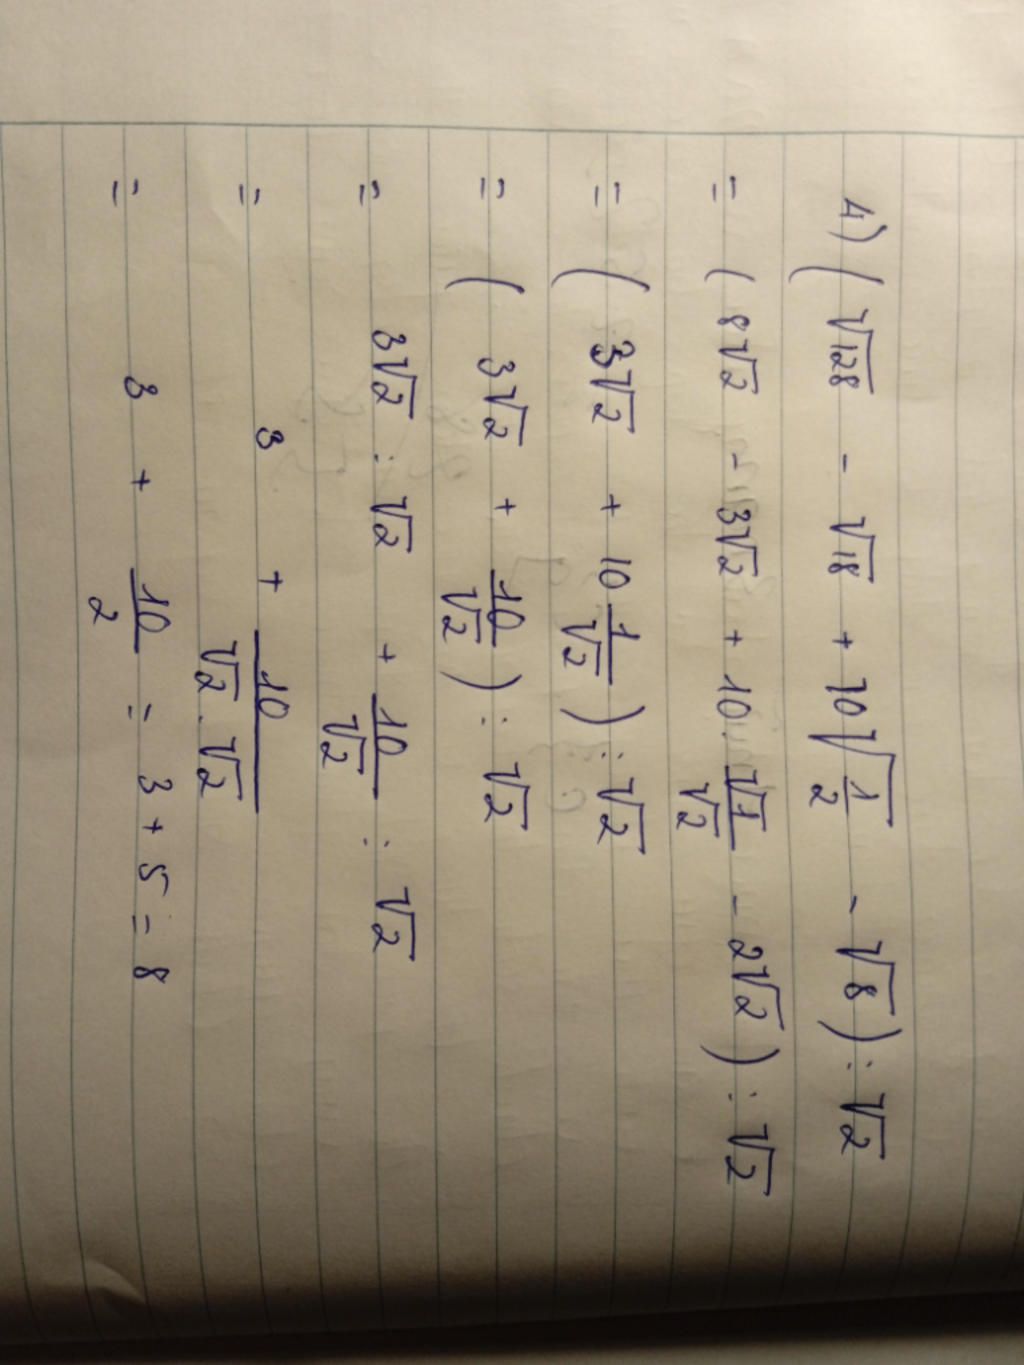 4) ( √128 - √18 + 10√(1/2) - √8 ) : √2
= ( 8√2 - 3√2 + 10 · √1/√2 - 2√2 ) : √2
= ( 3√2 + 10 1/√2 ) : √2
= ( 3√2 + 10/√2 ) : √2
= 3√2 : √2 + 10/√2 : √2
= 3 + 10/(√2 · √2)
= 3 + 10/2 = 3 + 5 = 8